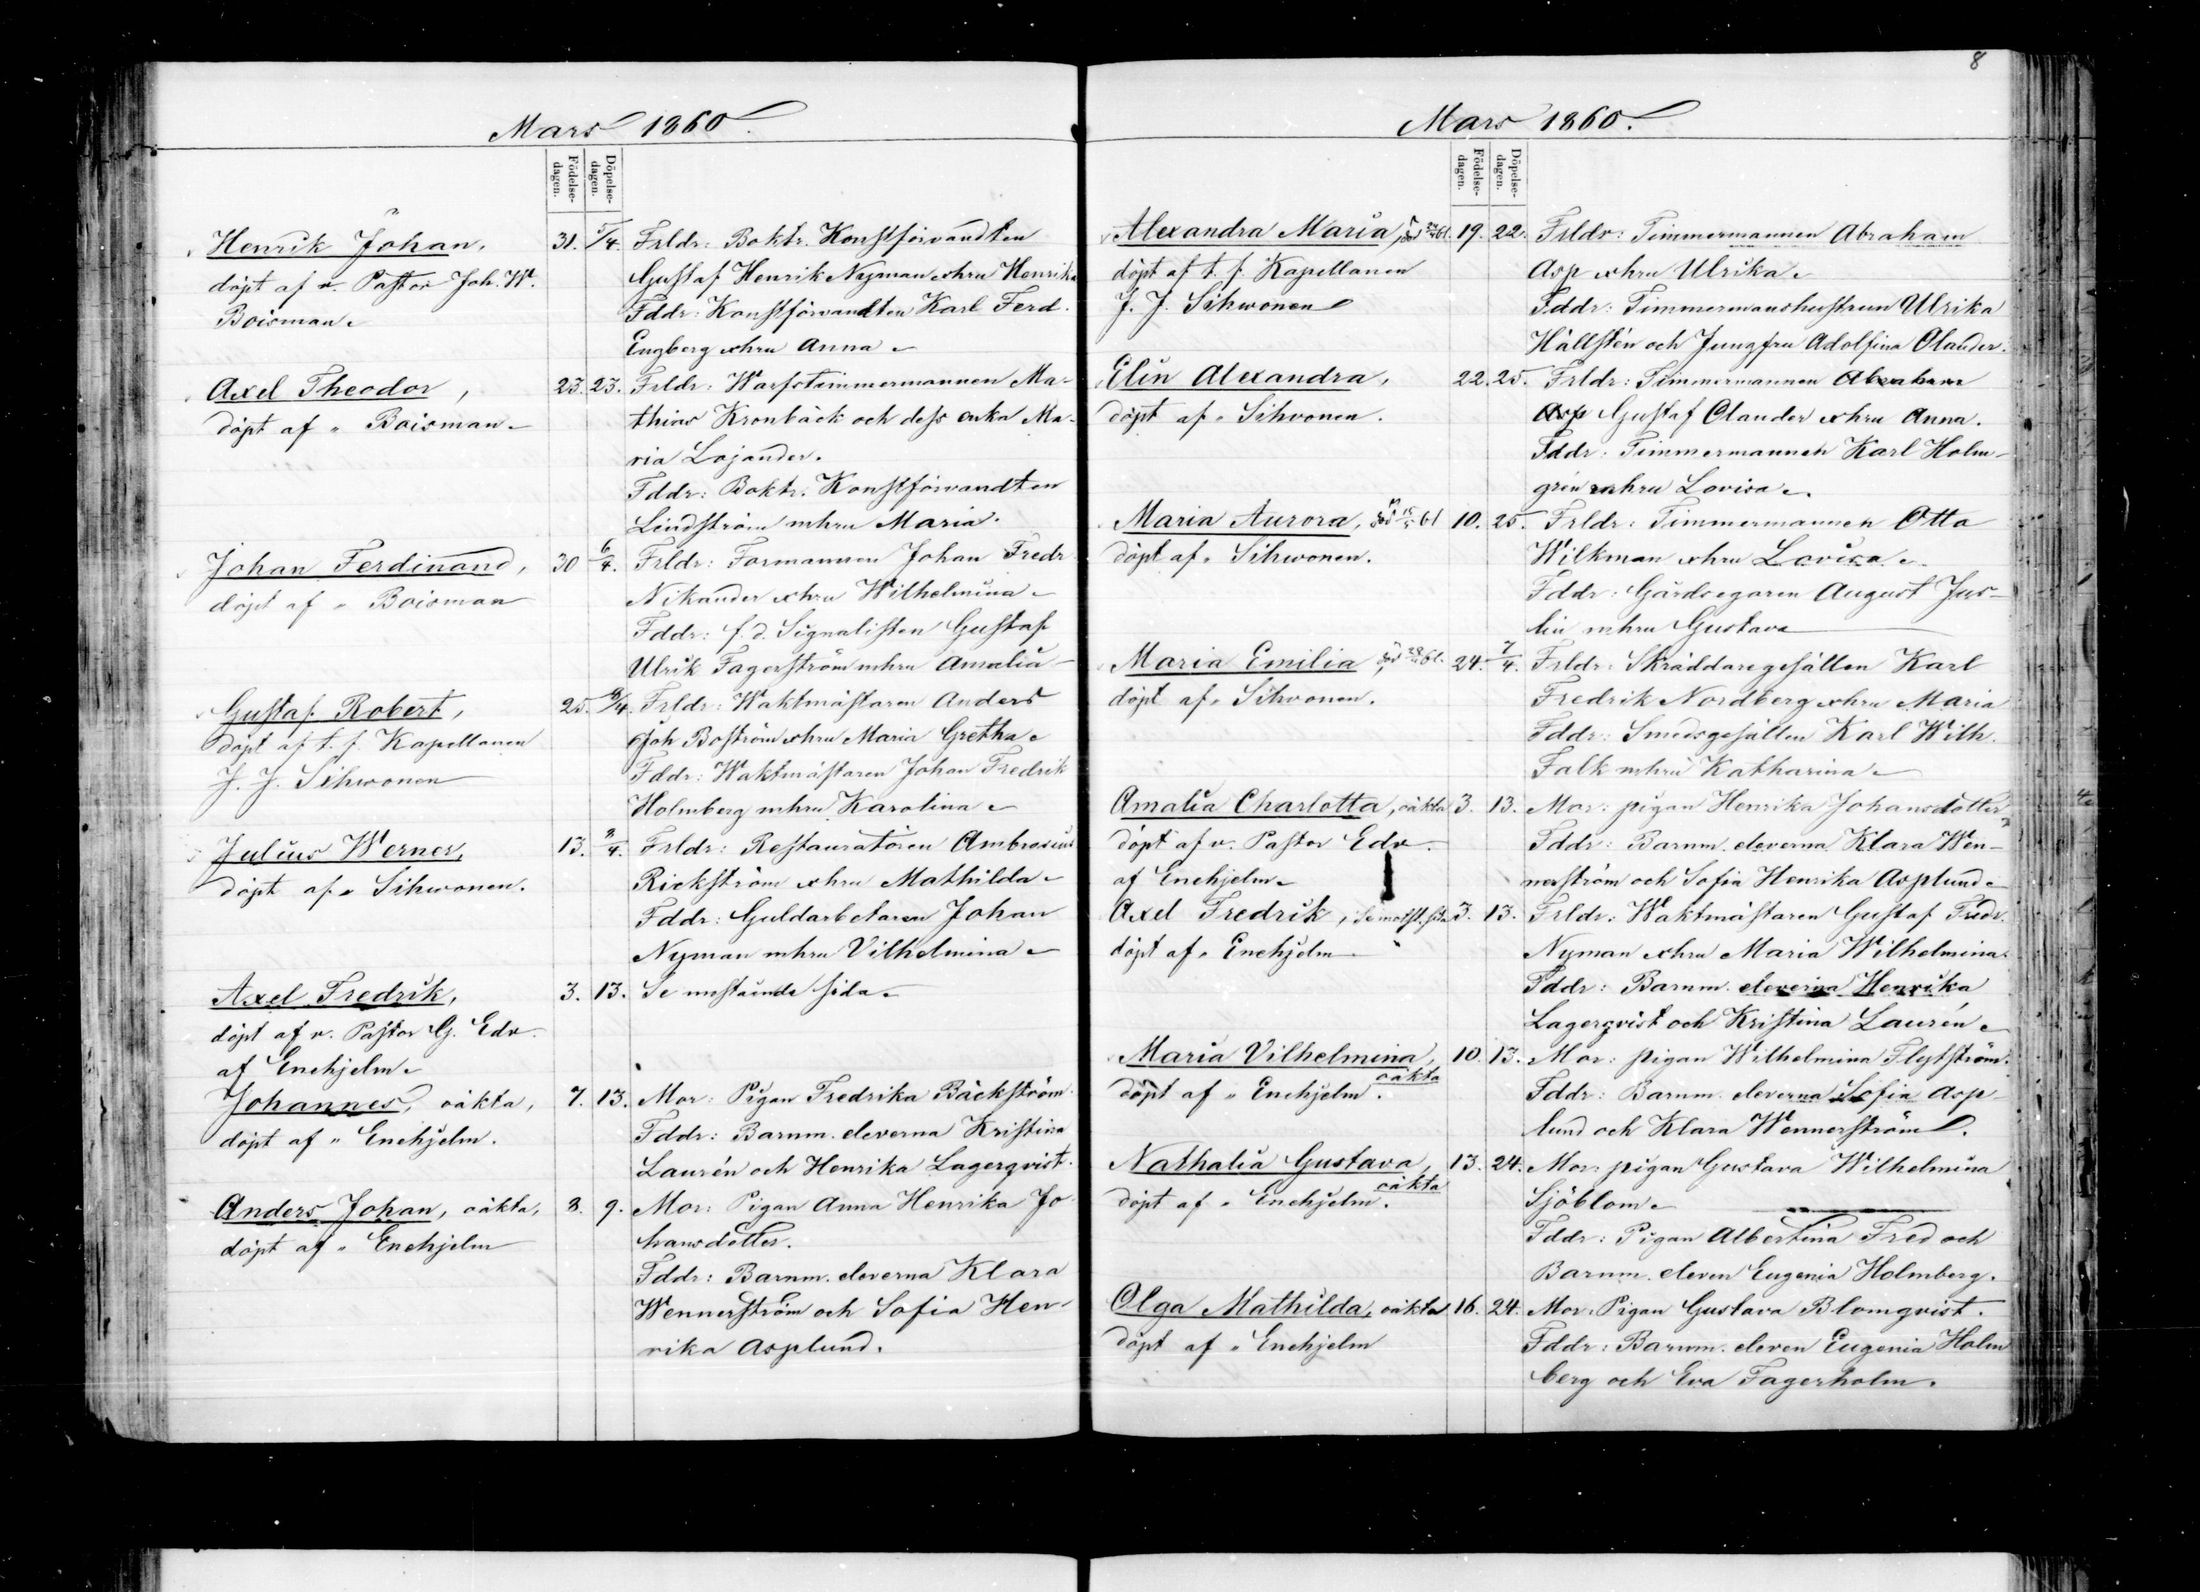 8
Mars 1860.
Födelse-dagen.
Döpelse-dagen.
Henrik Johan,
döpt af v. Pastor Joh. W.
Boisman.
31. 1/4. Frldr: Boktr. Konstförvandten
Gustaf Henrik Nyman o hru Henrika
Fddr: Konstförvandten Karl Ferd.
Engberg o hru Anna.
Axel Theodor,
döpt af " Boisman.
23. 23. Frldr: Warfstimmermannen Ma-
thias Kronbäck och dess enka Ma-
ria Lojander.
Fddr: Boktr. Konstförvandten
Lindström m hru Maria.
Johan Ferdinand,
döpt af " Boisman
30 6/4. Frldr: Formannen Johan Fredr
Nikander o hru Wilhelmina.
Fddr: f. d. Signalisten Gustaf
Ulrik Fagerström m hru Amalia
Gustaf Robert,
döpt af t. f. Kapellanen
J. J. Sihwonen
25. /4. Frldr: Waktmästaren Anders
Joh Boström o hru Maria Gretha.
Fddr: Waktmästaren Johan Fredrik
Holmberg m hru Karolina.
Julius Werner,
döpt af " Sihwonen.
13. /4. Frldr: Restauratören Ambrosius
Rickström o hru Mathilda.
Fddr: Guldarbetaren Johan
Nyman m hru Vilhelmina.
Axel Fredrik,
döpt af v. Pastor G. Edv.
af Enehjelm.
3. 13. Se motstående sida.
Johannes, oäkta,
döpt af " Enehjelm.
7. 13. Mor: Pigan Fredrika Bäckström.
Fddr: Barnm. eleverna Kristina
Laurén och Henrika Lagerqvist.
Anders Johan, oäkta,
döpt af " Enehjelm
8. 9. Mor: Pigan Anna Henrika Jo-
hansdotter.
Fddr: Barnm. eleverna Klara
Wennerström och Sofia Hen-
rika Asplund.
Mars 1860.
Födelse-dagen.
Döpelse-dagen.
Alexandra Maria, död 61.
döpt af t. f. Kapellanen
J. J. Sihwonen
19. 22. Frldr: Timmermannen Abraham
Asp o hru Ulrika.
Fddr: Timmermanshustrun Ulrika
Hällstén och Jungfru Adolfina Olander.
Elin Alexandra,
döpt af " Sihvonen.
22. 25. Frldr: Timmermannen Abraham
Asp Gustaf Olander o hru Anna.
Fddr: Timmermannen Karl Holm-
grén m hru Lovisa.
Maria Aurora, död 61
döpt af " Sihwonen.
10. 25. Frldr: Timmermannen Otto
Wilkman o hru Lovisa.
Fddr: Gårdsegaren August Jus-
lin m hru Gustava
Maria Emilia, död 28 61.
döpt af " Sihvonen.
24. 7/4. Frldr: Skräddaregesällen Karl
Fredrik Nordberg o hru Maria
Fddr: Smedsgesällen Karl Wilh.
Falk m hru Katharina.
Amalia Charlotta, oäkta
döpt af v. Pastor Edv.
af Enehjelm.
3. 13. Mor: pigan Henrika Johansdotter
Fddr: Barnm. eleverna Klara Wen-
nerström och Sofia Henrika Asplund.
Axel Fredrik, Se motst. sida
döpt af " Enehjelm
3. 13. Frldr: Waktmästaren Gustaf Fredr.
Nyman o hru Maria Wilhelmina.
Fddr: Barnm. eleverna Henrika
Lagerqvist och Kristina Laurén.
Maria Vilhelmina, oäkta
döpt af " Enehjelm.
10. 13. Mor: pigan Wilhelmina Flytström.
Fddr: Barnm. eleverna Sofia Asp-
lund och Klara Wennerström.
Nathalia Gustava, oäkta
döpt af " Enehjelm.
13. 24. Mor: pigan Gustava Wilhelmina
Sjöblom.
Fddr: Pigan Albertina Fred och
Barnm. eleven Eugenia Holmberg.
Olga Mathilda, oäkta
döpt af " Enehjelm
16. 24. Mor: Pigan Gustava Blomqvist.
Fddr: Barnm. eleven Eugenia Holm
berg och Eva Fagerholm.